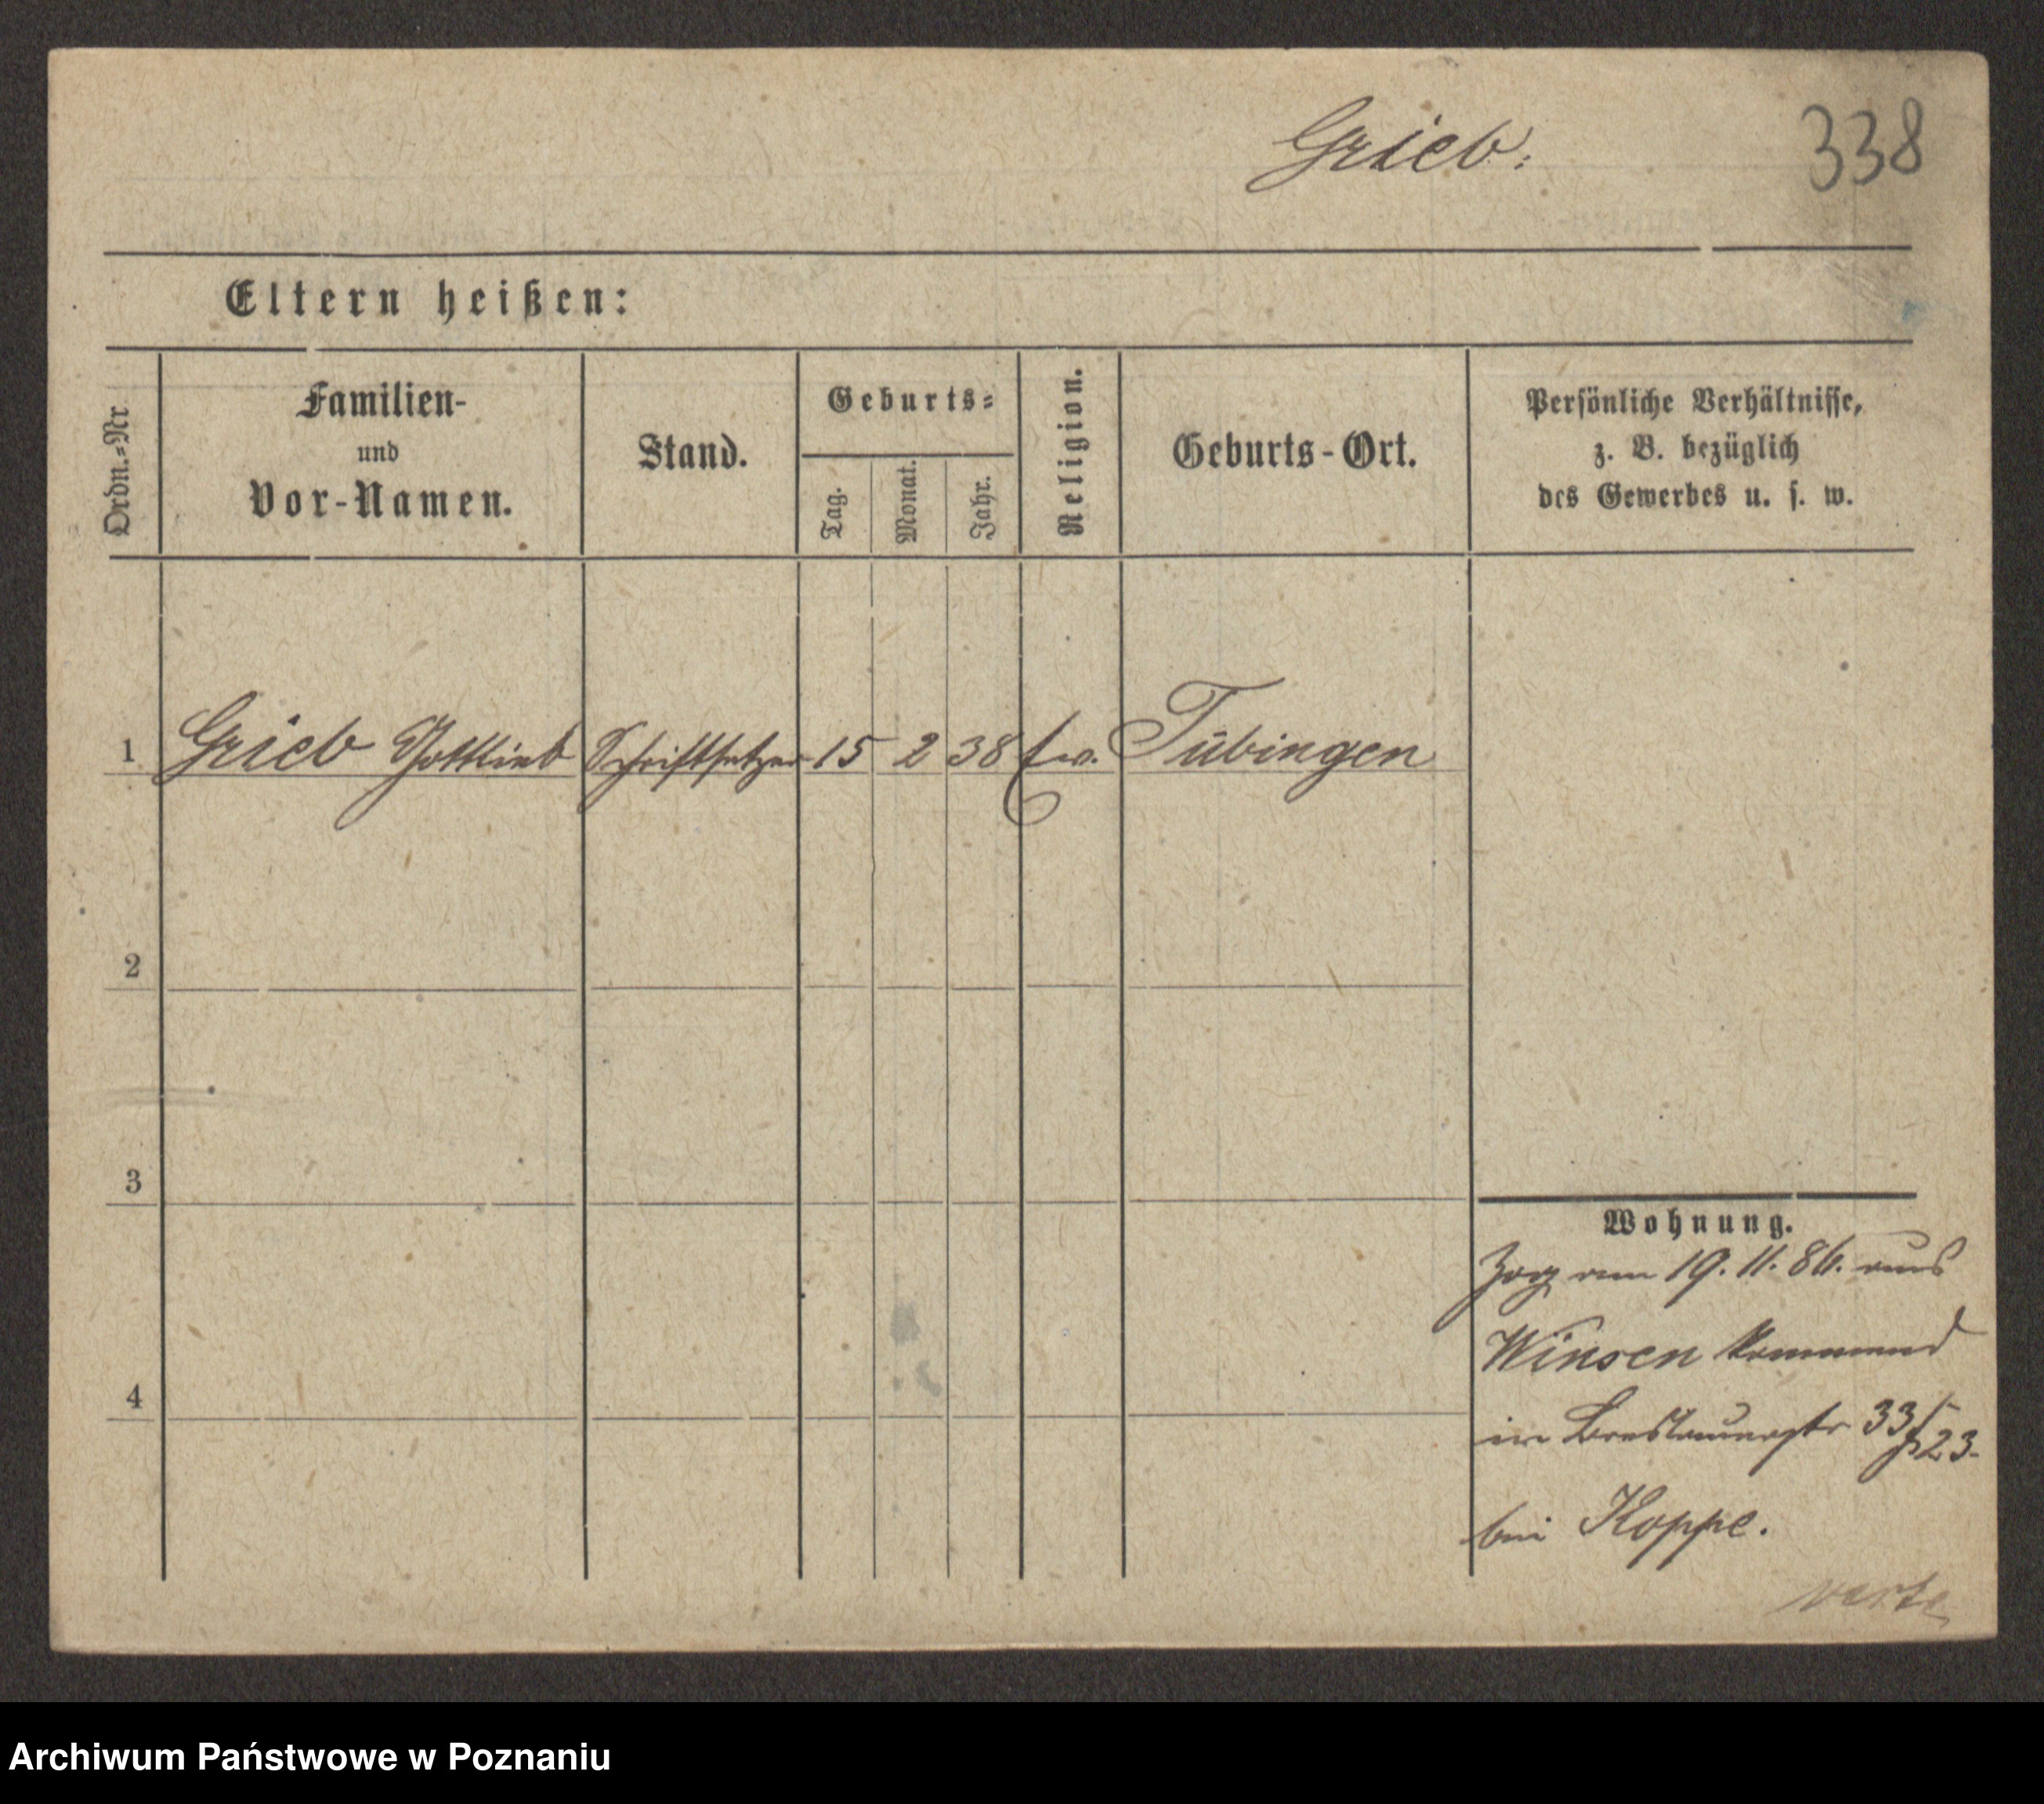 Grieb.
338
Eltern heißen:
Ordn.=Nr
Familien-
und
Vor-Namen.
Stand.
Geburts=
Tag.
Monat.
Jahr.
Religion.
Geburts-Ort.
Persönliche Verhältnisse,
z. B. bezüglich
des Gewerbes u. s. w.
1 Grieb Gottlieb Schriftsetzer 15 2 38 ev. Tübingen
2
3
4
Wohnung.
Zog am 19. 11. 86. aus
Winsen kommend
in Breslauerstr 33/
23.
bei Koppe.
verte
Archiwum Państwowe w Poznaniu